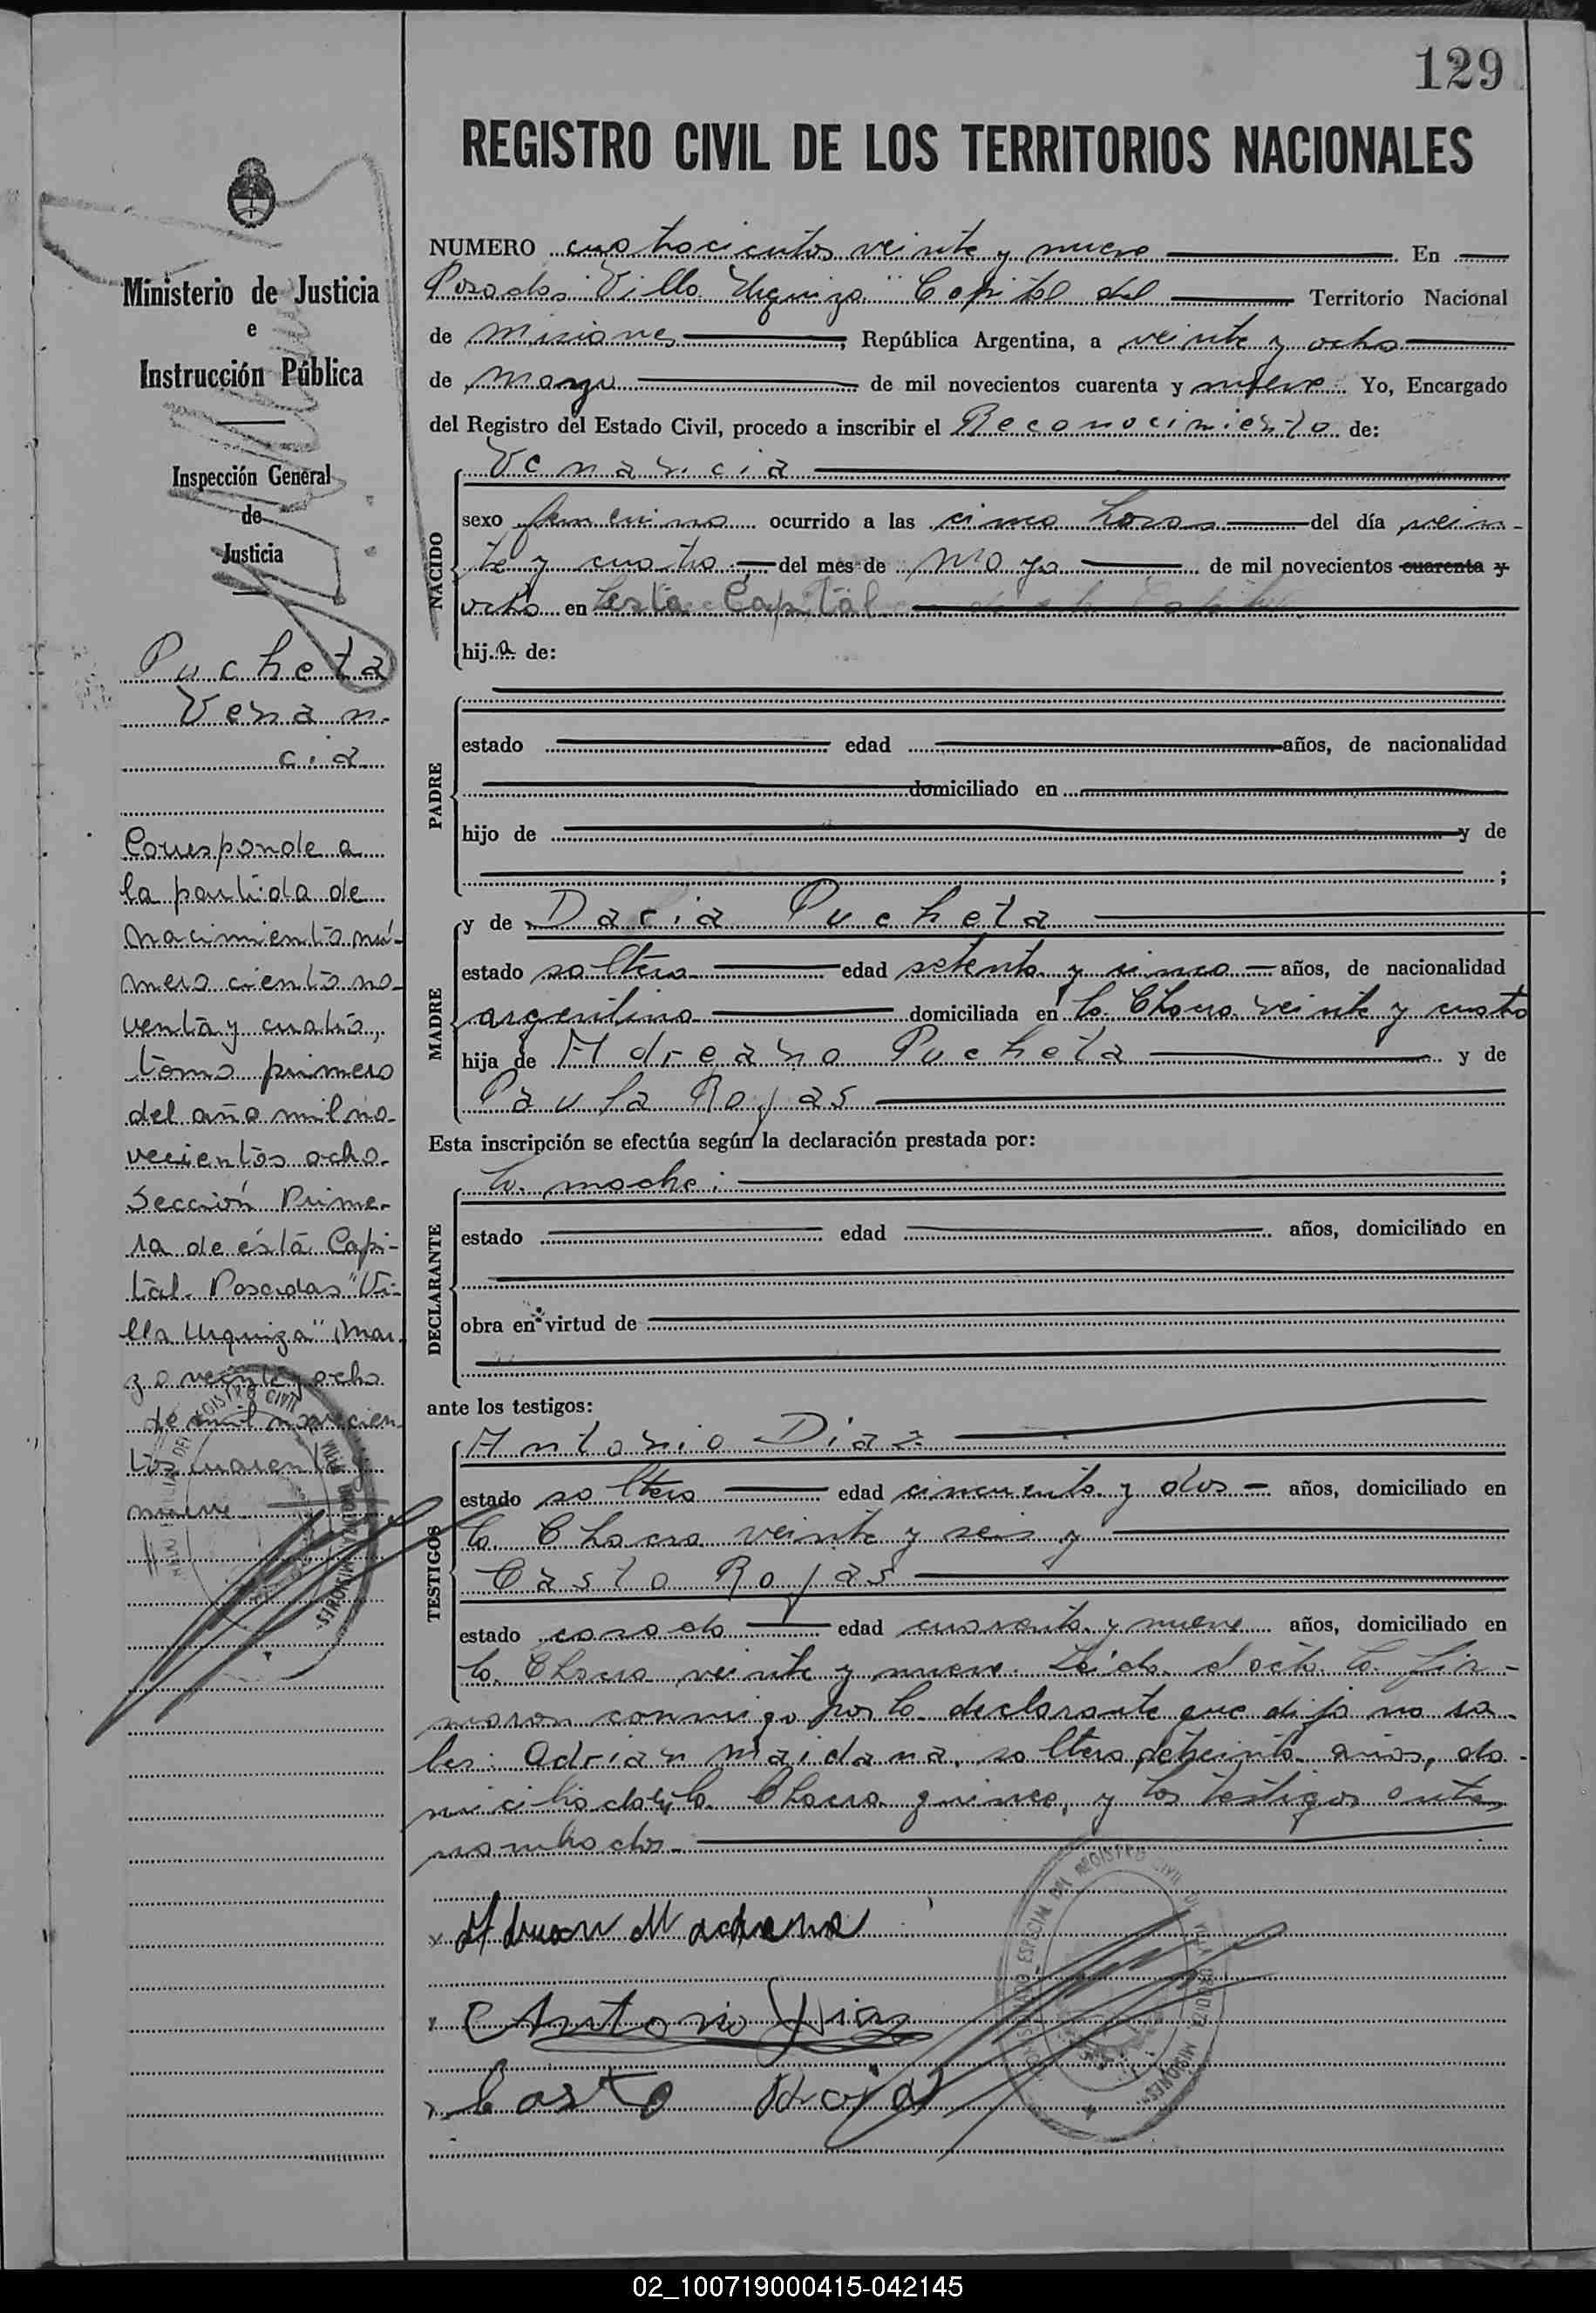 129
REGISTRO CIVIL DE LOS TERRITORIOS NACIONALES
Ministerio de Justicia
e
Instrucción Pública
Inspección General
de
Justicia
Pucheta
Venan-
cia
Corresponde a
la partida de
nacimiento nú-
mero ciento no-
venta y cuatro,
tomo primero
del año mil no-
vecientos ocho.
Sección Prime-
ra de ésta Capi-
tal. Posadas "Vi-
lla Urquiza" Mar-
zo veinte y ocho
de mil novecien-
tos cuarenta y
nueve
NUMERO cuatrocientos veinte y nueve En
Posadas "Villa Urquiza" Capital del Territorio Nacional
de Misiones, República Argentina, a veinte y ocho
de Marzo de mil novecientos cuarenta y nueve. Yo, Encargado
del Registro del Estado Civil, procedo a inscribir el Reconocimiento de:
NACIDO
Venancia
sexo femenino ocurrido a las cinco horas del día vein-
te y cuatro del mes de Mayo de mil novecientos cuarenta y
ocho en esta Capital
hija de:
PADRE
estado edad años, de nacionalidad
domiciliado en
hijo de y de
;
MADRE
y de Daria Pucheta
estado soltera edad setenta y cinco años, de nacionalidad
argentina domiciliada en la Chacra veinte y cuatro
hija de Adreano Pucheta y de
Paula Rojas
Esta inscripción se efectúa según la declaración prestada por:
DECLARANTE
la madre:
estado edad años, domiciliado en
obra en virtud de
ante los testigos:
TESTIGOS
Antonio Diaz
estado soltero edad cincuenta y dos años, domiciliado en
la Chacra veinte y seis y
Casto Rojas
estado casado edad cuarenta y nueve años, domiciliado en
la Chacra veinte y nueve. Leída el acta la fir-
maron conmigo por la declarante que dijo no sa-
ber: Adrian Maidana, soltero, de treinta años, do-
miciliado en la Chacra quince, y los testigos ante
nombrados.
Adrian Madana
Antonio Diaz
Casto Rojas
02_100719000415-042145